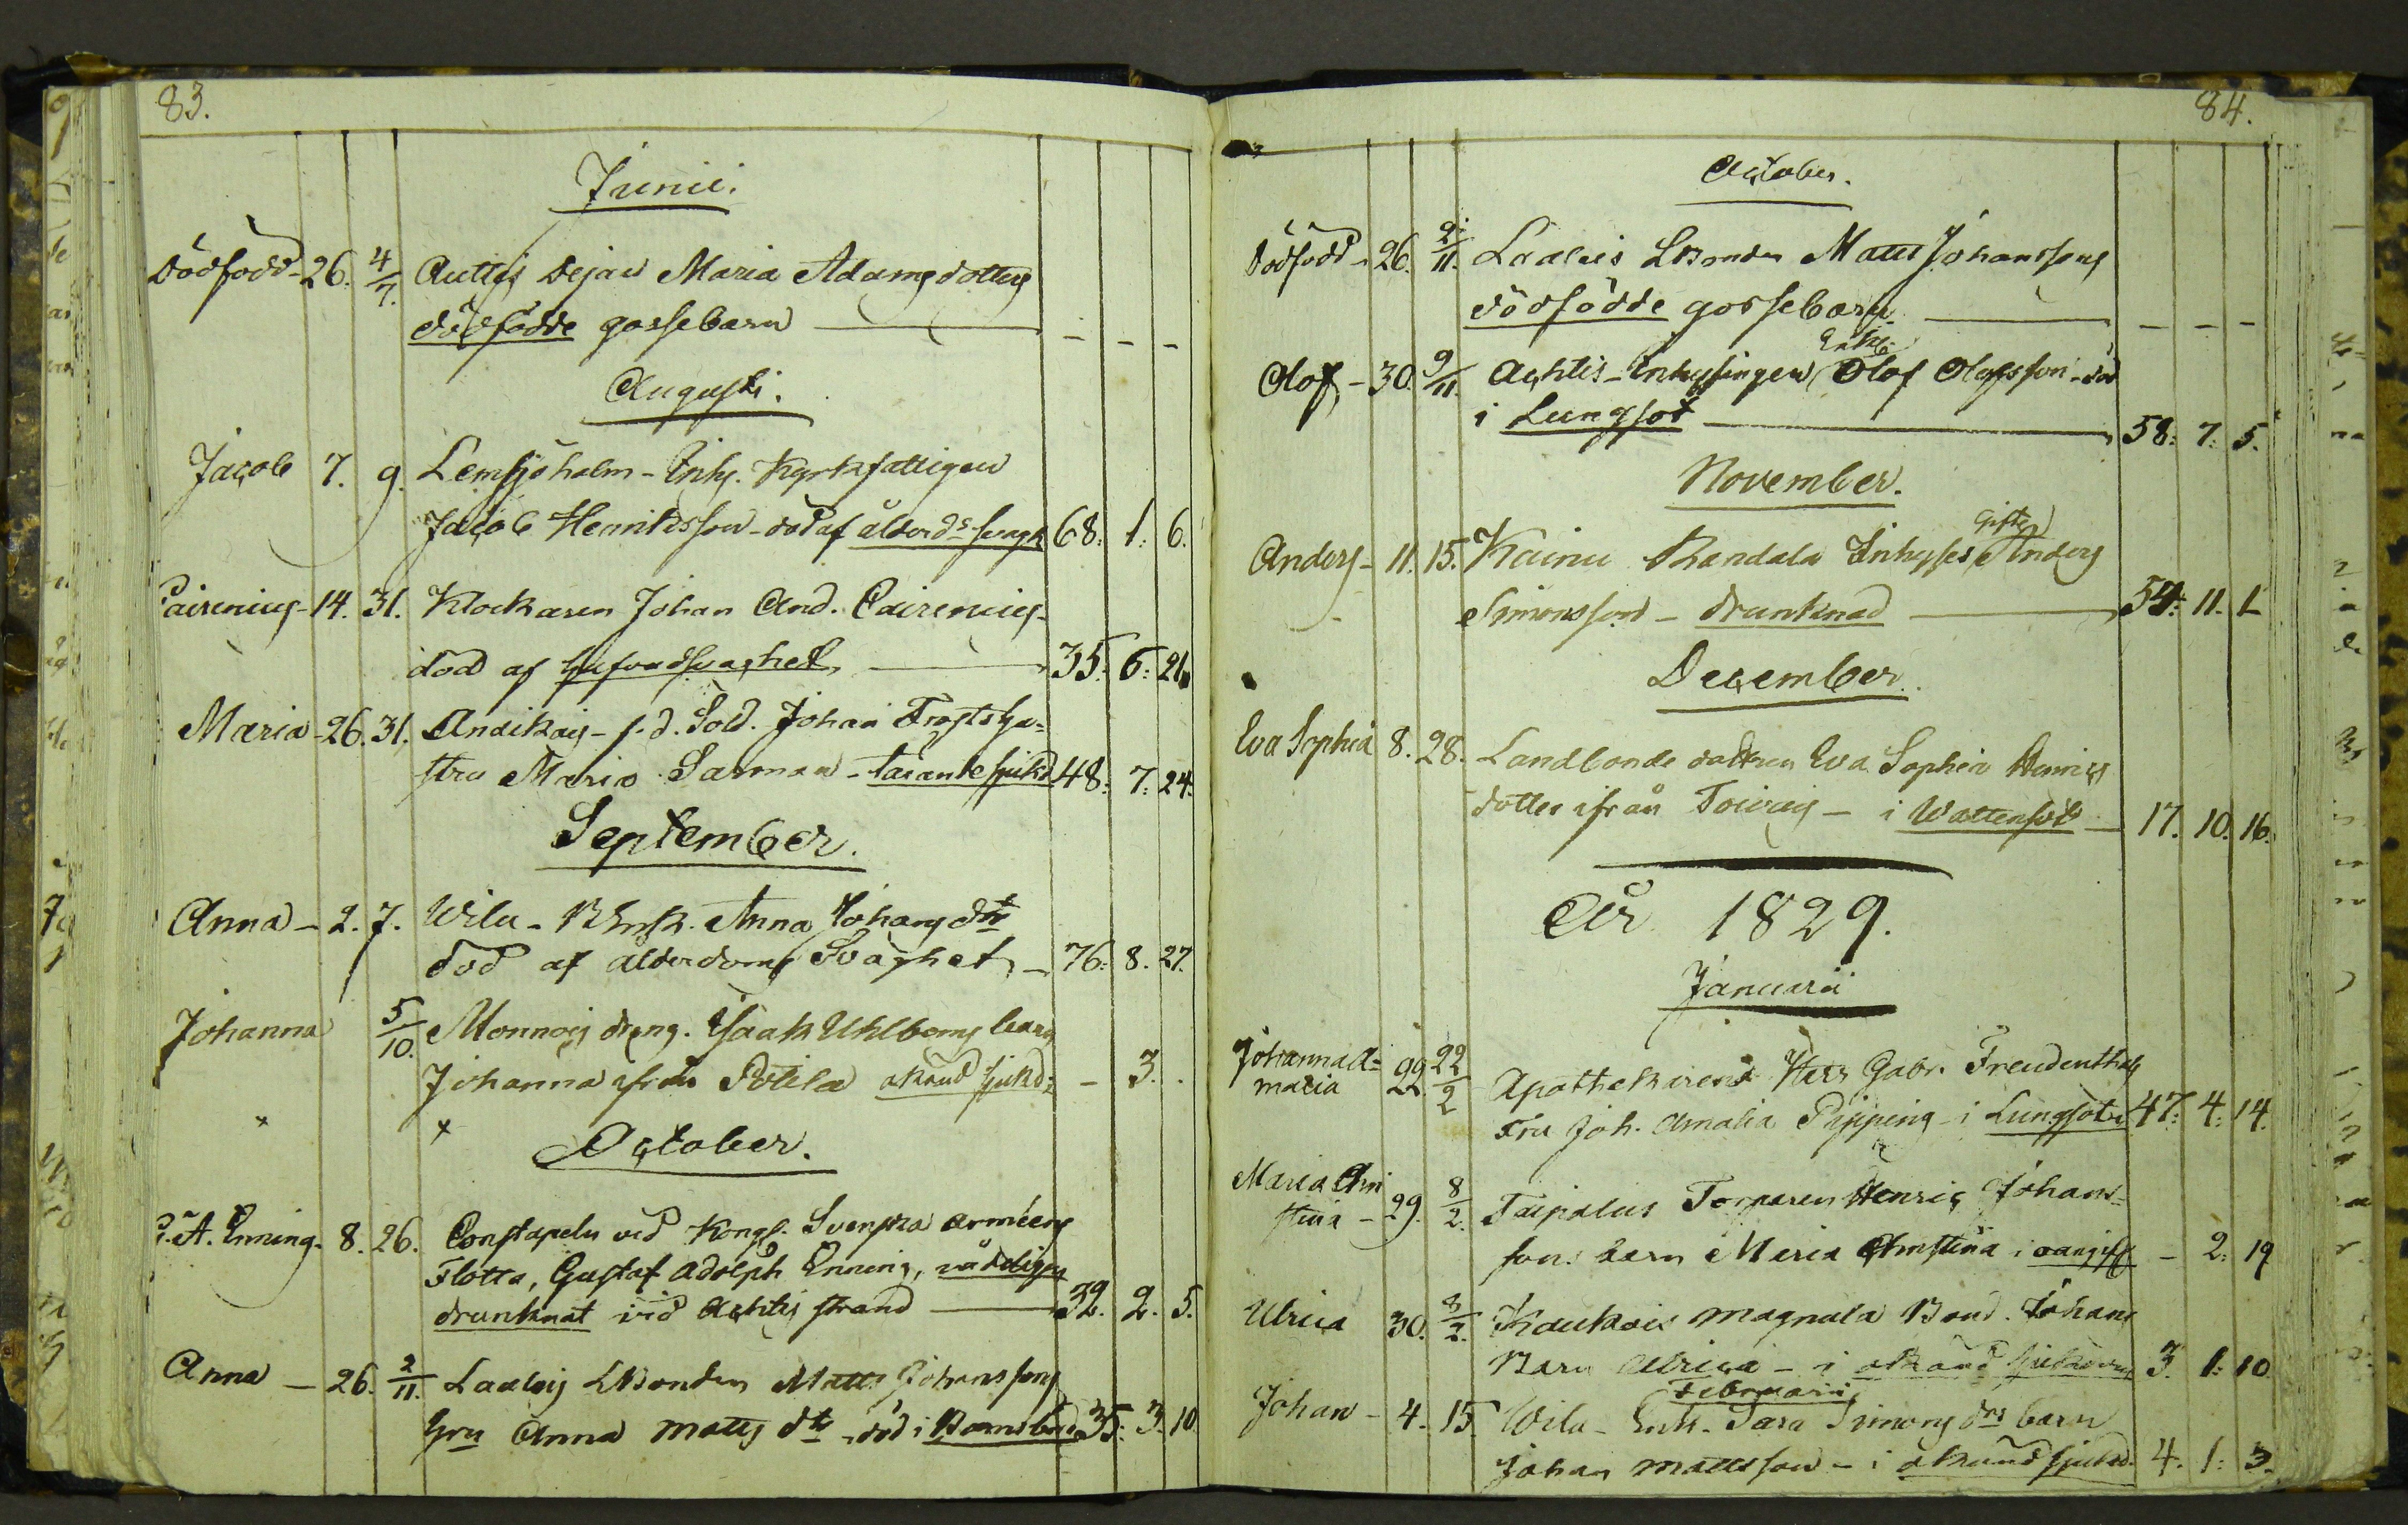 83.
Junii.
Dödfödd - 26. 4/7. Auttis Dejan Maria Adamsdotters
dödfödde gossebarn - - -
Augusti.
Jacob 7. 9. Lemsjöholm - Inhs. Kyrkfattigen
Jacob Henriksson - död af ålderds 68. 1. 6.
Pairenius - 14. 31. Klockaren Johan And. Pairenius
död af 35. 6. 21.
Maria - 26. 31. Anikais - f.d. Sold. Johan Hu-
stru Maria Sarman - tärande sjukd. 48. 7. 24.
September.
Anna - 2. 7. Wilu - Enk. Anna Johans dtr
död af ålderdoms Svaghet - 76. 8. 27.
Johanna 5/10. Monnois dreng. Isaak Uhlboms barn
Johanna ifrån Potila okänd sjukd: - 3.
October.
G. A. Enning. 8. 26. Constapeln vid Kongl. Svenska arméens
Flotta, Gustaf Adolph Enning, vådeligen
drunknat vid Achtis strand 32. 2. 5.
Anna - 26. 2/11. Laalois LBonden Matts Johanssons
Hru Anna Matts dtr - död i Barnsbörd 35. 3. 10.
84.
October.
Dödfödd - 26. 2/11. Laalois LBonden Matts Johanssons
dödfödde gossebarn - - -
Enkl.
Olof - 30. 9/11. Achtis - Inhysingen Olof Olofsson - död
i Lungsot 58. 7. 5.
November.
Gifte
Anders - 11. 15. Kainu Randala Inhyses Anders
Simonsson - drunknad 54. 11. 1
December.
Eva Sophia 8. 28. Landbonde dottren Eva Sophia Henrics
dotter ifrån - i Wattensot - 17. 10. 16.
År 1829.
Januarii
Johanna A-
malia 22. 22/2 Apothekarens Herr Gabr. Freudenthals
Fru Joh. Amalia Pipping - i Lungsot 47. 4. 14.
Maria Chri
stina - 29. 8/2. Taipalus Torparen Henric Johans-
sons barn Maria Christina i - 2. 19
Ulrica 30. 8/2. Kaukois Magnula Bond. Johans
Barn Ulrica - i okänd sjukdom 3. 1. 10
Februarii
Johan - 4. 15. Wilu - Enk. Sara Simons drs barn
Johan Mattsson - i okänd sjukd. 4. 1. 3.